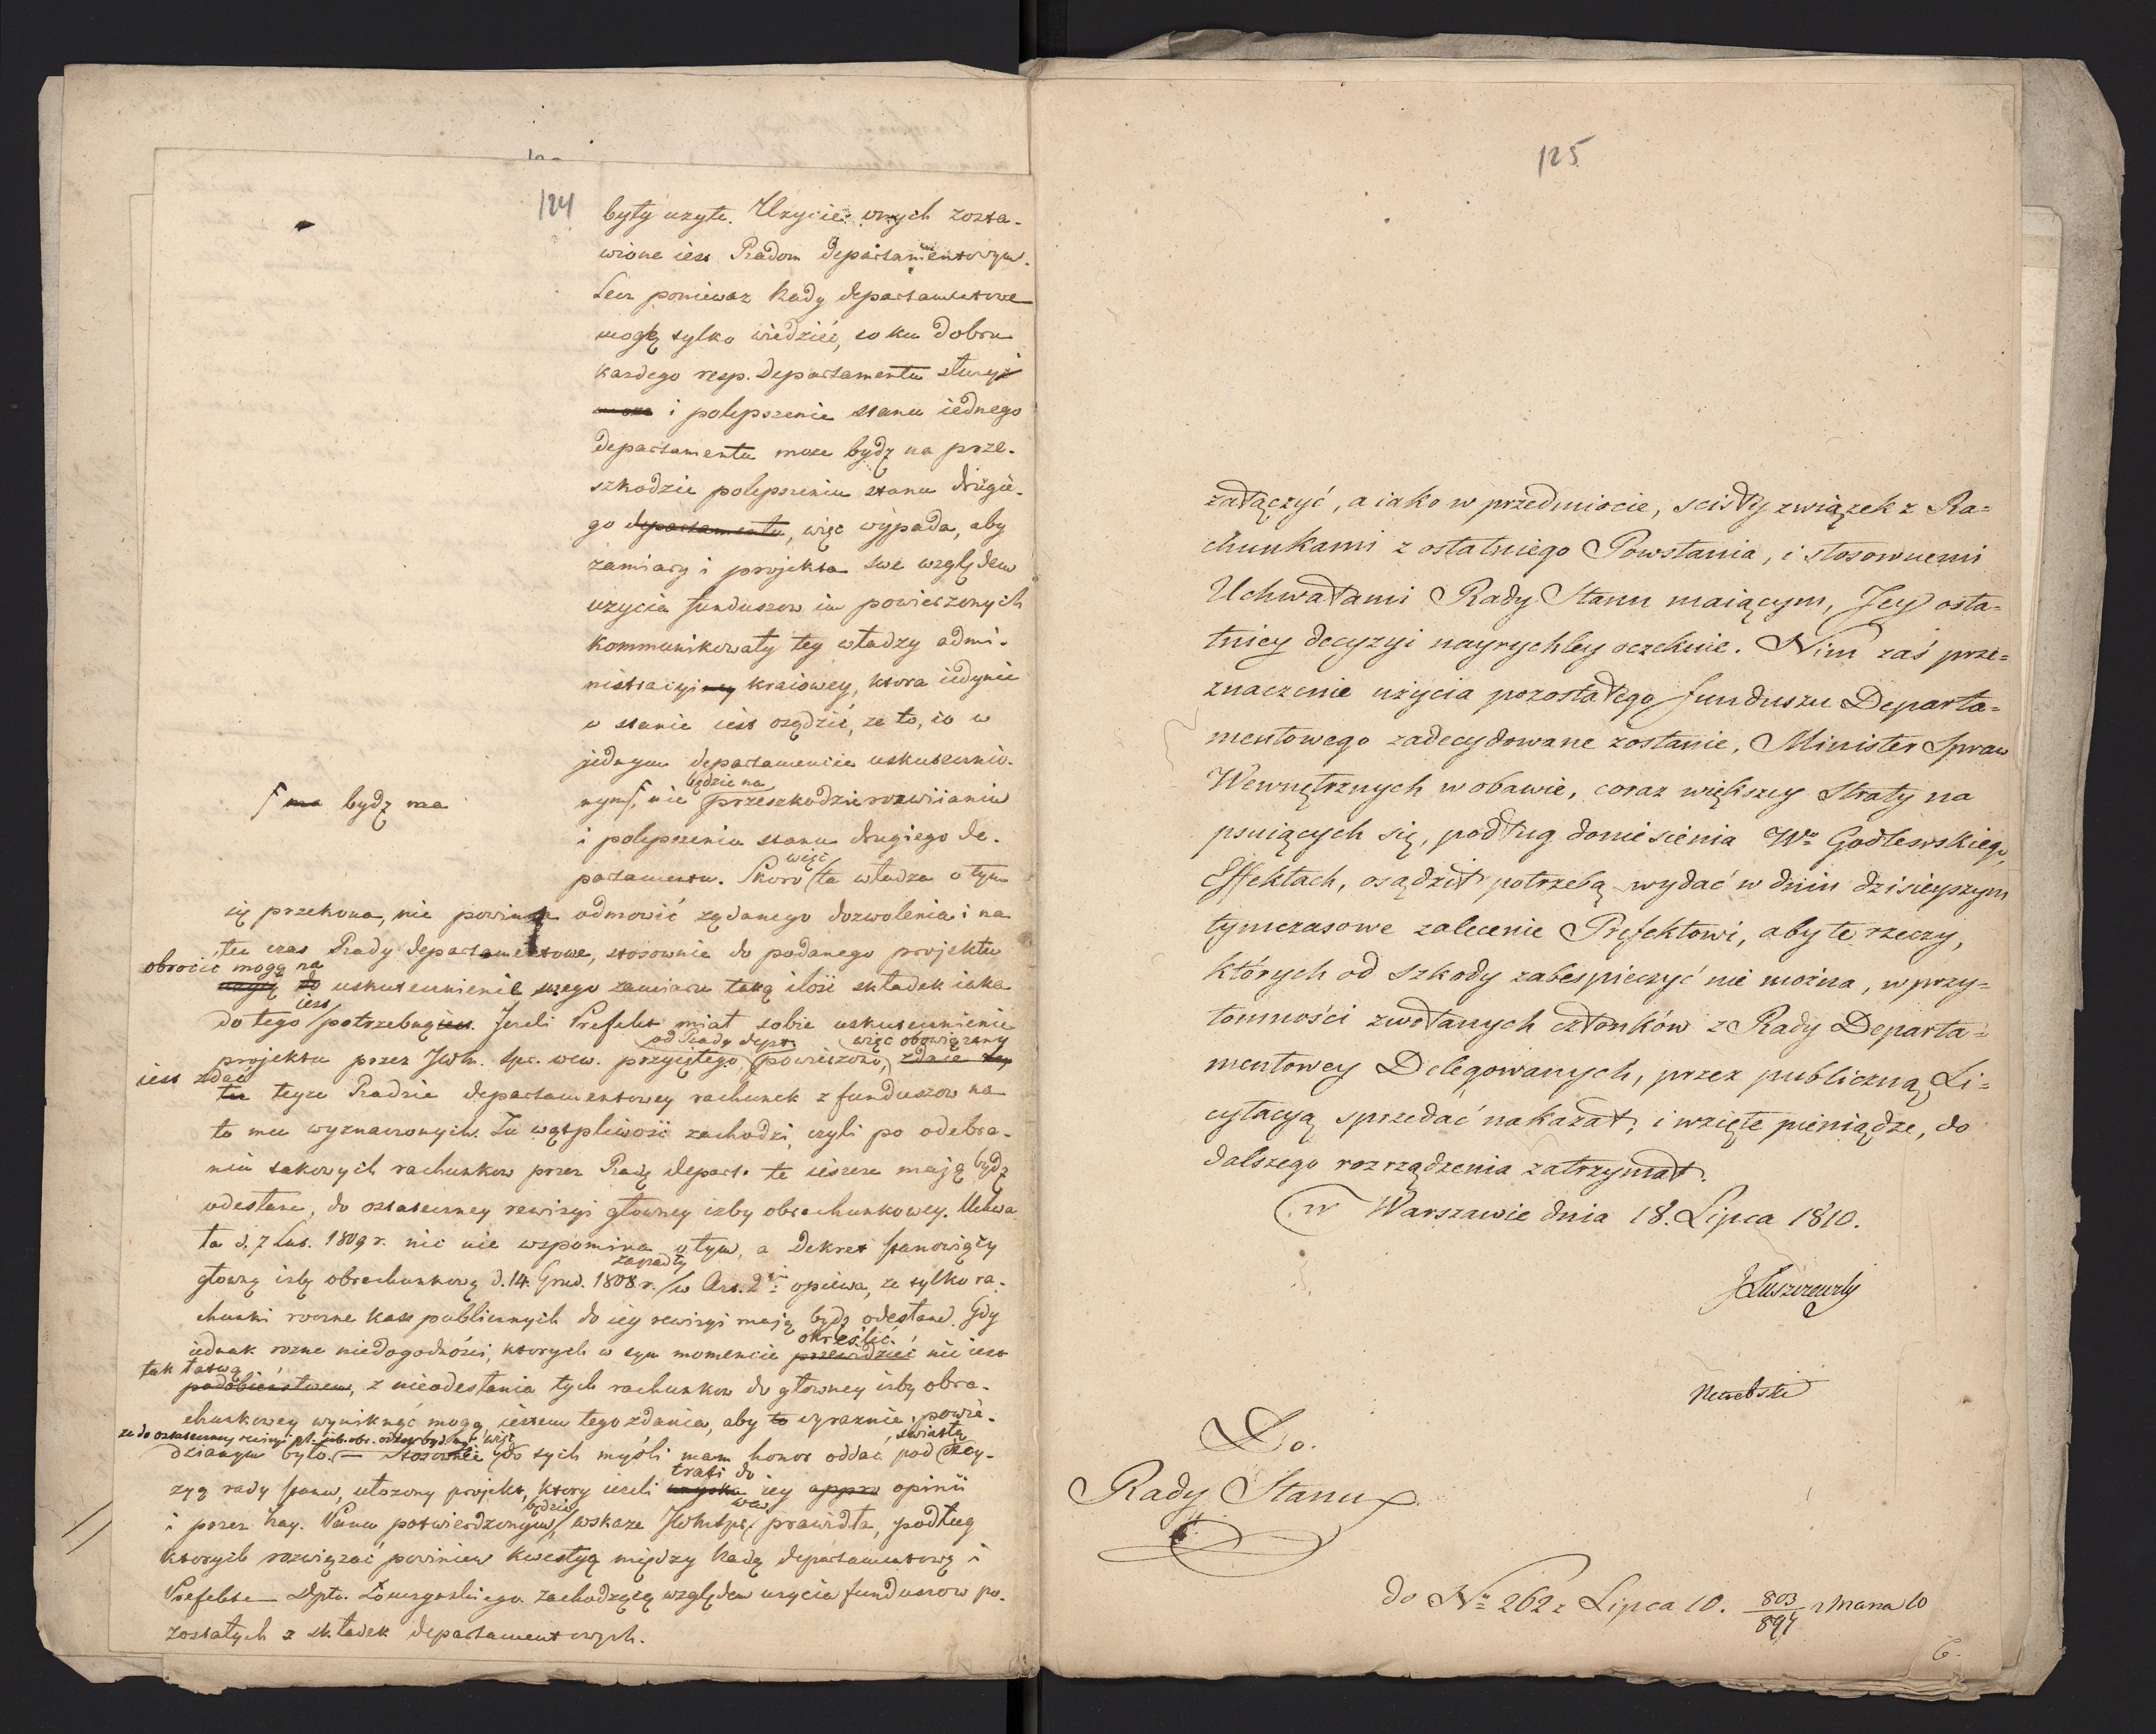 124
były uzyte. Uzycie onych zosta-
wione iest Radom departamentowym.
Lecz poniewaz Rady departamentowe
mogą tylko wiedzieć, co ku dobru
kazdego resp. departamentu służy
i polepszenie stanu iednego
departamentu moze bydź na prze-
szkodzie polepszeniu stanu drugie-
go departamentu, więc wypada, aby
zamiary i projekta swe względem
uzycia funduszow im powierzonych
kommunikowały tey władzy admi-
nistracyiney kraiowey, ktora iedynie
w stanie iest osądzić, ze to, co w
jednym departamencie uskutecznio-
będzie na
nym, nie przeszkodzie rozwiianiu
ma bydź ma
i polepszeniu stanu drugiego de-
więc
partamentu. Skoro ta władza o tym
się przekona, nie powinna odmowić ządanego dozwolenia i na
ten czas Rady departamentowe, stosownie do podanego projektu
obrocić mogą na
do uskutecznienie swego zamiaru taką ilość składek iaka
iest
do tego potrzebną iest. Jezeli Prefekt miał sobie uskutecznienie
od Rady dept. więc obowiązany
projektu przez JWM. Spr. wew. przyiętego, powierzone, zdaie
iest zdać
teyze Radzie departamentowey rachunek z funduszow na
to mu wyznaczonych. Tu wątpliwość zachodzi, czyli po odebra-
niu takowych rachunkow przez Radę depart. te ieszcze mają bydź
odesłane, do ostateczney rewizyi głowney izby obrachunkowey. Uchwa-
ła d. 7 Lut. 1809 r. nic nie wspomina o tym, a Dekret stanowiący
zapadły
głowną izbę obrachunkową d. 14. Grud. 1808 r. w Art. 2 opiewa, ze tylko ra-
chunki roczne kass publicznych do iey rewizyi mają bydź odesłane. Gdy
określić
iednak rozne niedogodności, ktorych w tym momencie przewidzieć nie iest
tak łatwą
podobieństwem, z nieodesłania tych rachunkow do głowney izby obra-
chunkowey wyniknąć mogą, iestem tego zdania, aby to wyraznie powie-
więc światłą
dzianym było. — Stosownie do tych myśli mam honor oddać pod decy-
trafi do
zyą rady stanu, ułozony projekt, ktory iezeli iey opinii
będzie wew.
i przez Nay. Pana potwierdzonym, wskaze JWMSpr. prawidła, podług
ktorych rozwiązać powinien kwestyą między Radą departamentową i
Prefekte — Dpto. Łomzynskiego zachodzącą względem uzycia funduszow po-
zostałych z składek departamentowych.
125
załączyć, a iako w przedmiocie, scisły związek z Ra-
chunkami z ostatniego Powstania, i stosownemi
Uchwałami Rady Stanu maiącym, Jey osta-
tniey decyzyi nayrychley oczekuie. Nim zaś prze-
znaczenie użycia pozostałego funduszu Departa-
mentowego zadecydowane zostanie, Minister Spraw
Wewnętrznych w obawie, coraz większey Straty na
psuiących się, podług doniesienia Wo Godlewskiego,
Effektach, osądził potrzebą wydać w dniu dzisieyszym
tymczasowe zalecenie Prefektowi, aby te rzeczy,
których od szkody zabespieczyć nie można, w przy-
tomności zwołanych członków z Rady Departa-
mentowey Delegowanych, przez publiczną Li-
cytacyą sprzedać nakazał, i wzięte pieniądze, do
dalszego rozrządzenia zatrzymał.
w Warszawie dnia 18. Lipca 1810.
JŁuszczewski
Do.
Rady Stanu
do No 262 z Lipca 10. 803/894 z Marca 10
6.